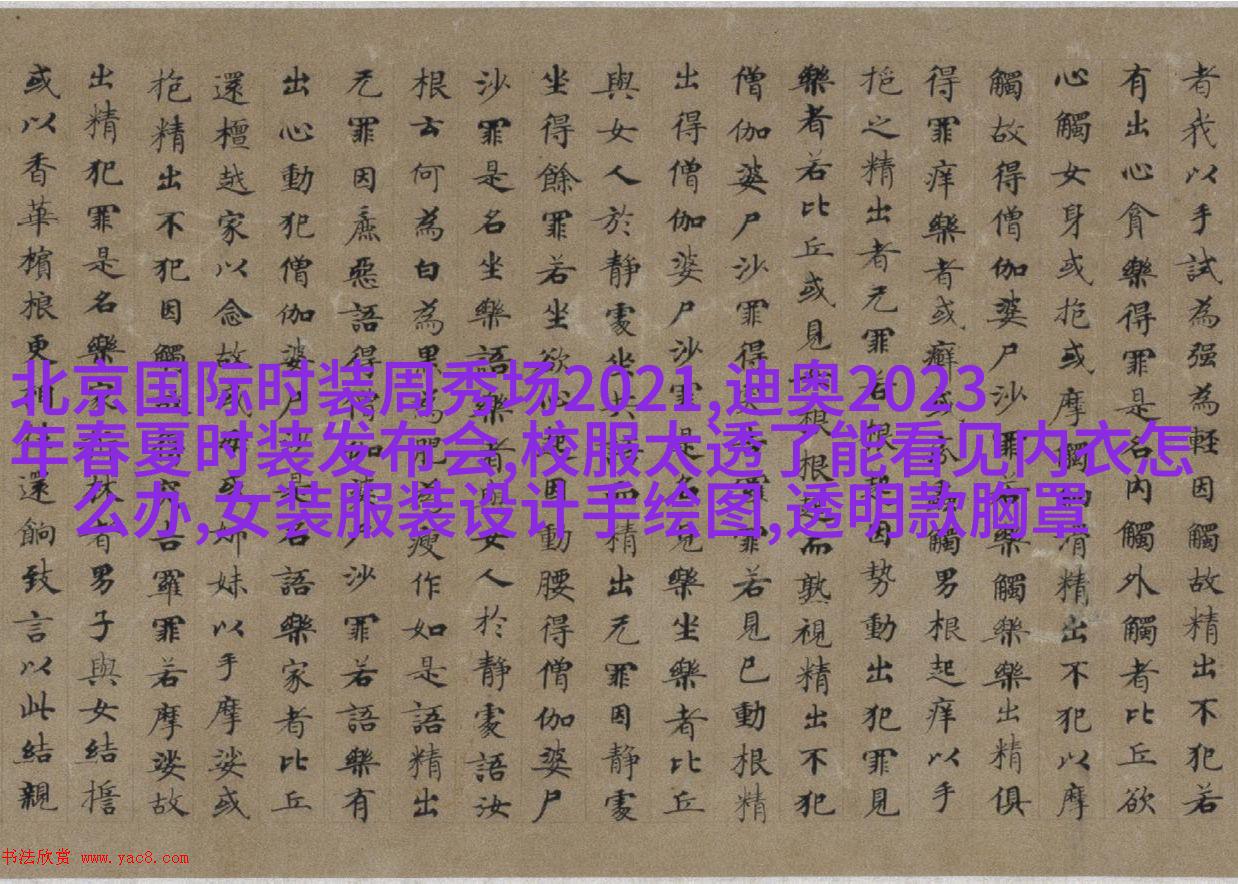 者我以手試為强為軽因觸故精出不犯若
有出心貪樂得罪是名内觸外觸者比丘欲
心觸女身或抱或摩觸細滑精出不犯以摩
觸故得僧伽婆尸沙罪樂觸樂樂出精俱
得罪痒樂者或癬或觸男根起痒以手
抱之精出者无罪若根起因勢動出犯罪見
樂者若比丘或見男根根起而熟視精出不犯
僧伽婆尸沙罪得罪若見已動根精
出得僧伽婆尸沙罪是名見樂坐樂者比丘
與女人於靜處坐共語而精出无罪因靜處
坐得餘罪若坐欲心起因動腰得僧伽婆尸
沙罪是名坐樂語樂者與女人於静處語汝
根云何為白為黒為肥為瘦作如是語精出
无罪因麁惡語得僧伽婆尸沙罪若語樂有
出心動犯僧伽婆尸沙是名語樂家者比丘
還檀越家以念故或女姉妹以手摩娑或
抱精出不犯因觸吉羅罪若摩娑故
出精犯罪是名樂家林者男子與女結誓
或以香華檳榔更相往還餉致言以此結親
北京国际时装周秀场2021,迪奥2023
年春夏时装发布会,校服太透了能看见内衣怎
么办,女装服装设计手绘图,透明款胸罩
书法欣赏 www.yac8.com